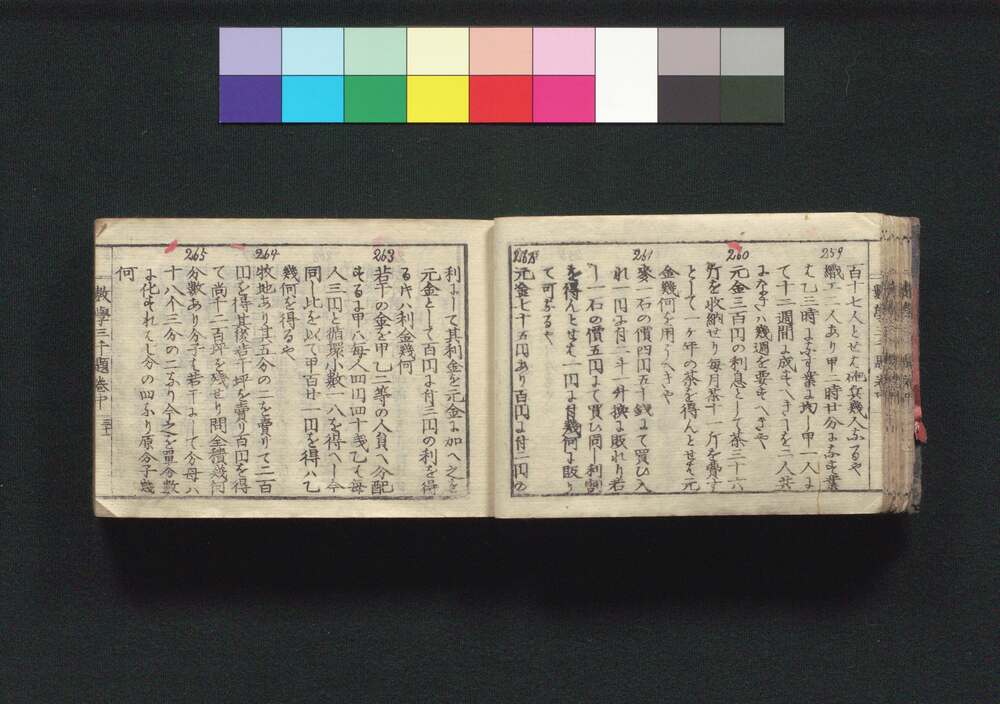 259
百十七人とせは砲兵幾人ふるや
職工二人あり甲ハ一時廿分にふす業
を乙ハ三時にふす業に均し甲一人に
て十二週間に成すへきを二人共
にふさハ幾週を要すへきや
260
元金三百円の利息として茶三十六
斤を收納せり毎月茶十一斤を費す
として一ケ年の茶を得んとせは元
金幾何を用うへきや
261
麥一石の價四円五十銭にて買ひ入
れ一円に付二斗一升換に販れり若
し一石の價五円にて買ひ同し利割
を得んとせは一円に付幾何に販り
て可ふるや
262
元金七十五円あり百円に付二円の
利にして其利金を元金に加へ之を
元金として百円に付三円の利を得
る片ハ利金幾何
263
若干の金を甲乙二等の人員へ分配
するに甲ハ毎人四円四十銭乙ハ毎
人三円と循環小數一八を得へし今
同し此を以て甲百廿一円を得ハ乙
幾何を得るや
264
牧地あり其五分の二を賣りて二百
円を得其後若干坪を賣り百円を得
て尚千二百坪を残せり問全積幾何
265
分數あり分子も若干にして分母ハ
十八个三分の二ふり今之を單分數
に化すれは七分の四ふり原分子幾
何
數學三千題卷中